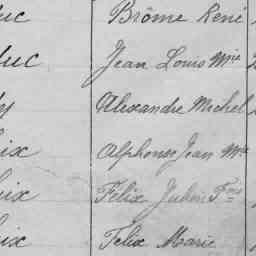 uc Brôme René
uc Jean Louis Mie
y Alexandre Michel
ix Alphonse Jean Mie
ix Félix Julien Fois
ix Felix Marie